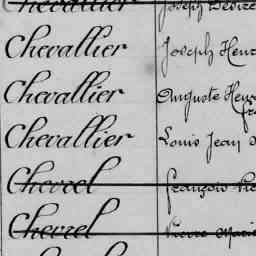 Chevallier Joseph Désiré
Chevallier Joseph Henri
Chevallier Auguste Henri
Chevallier Louis Jean
Chevrel François
Chevrel Pierre Marie